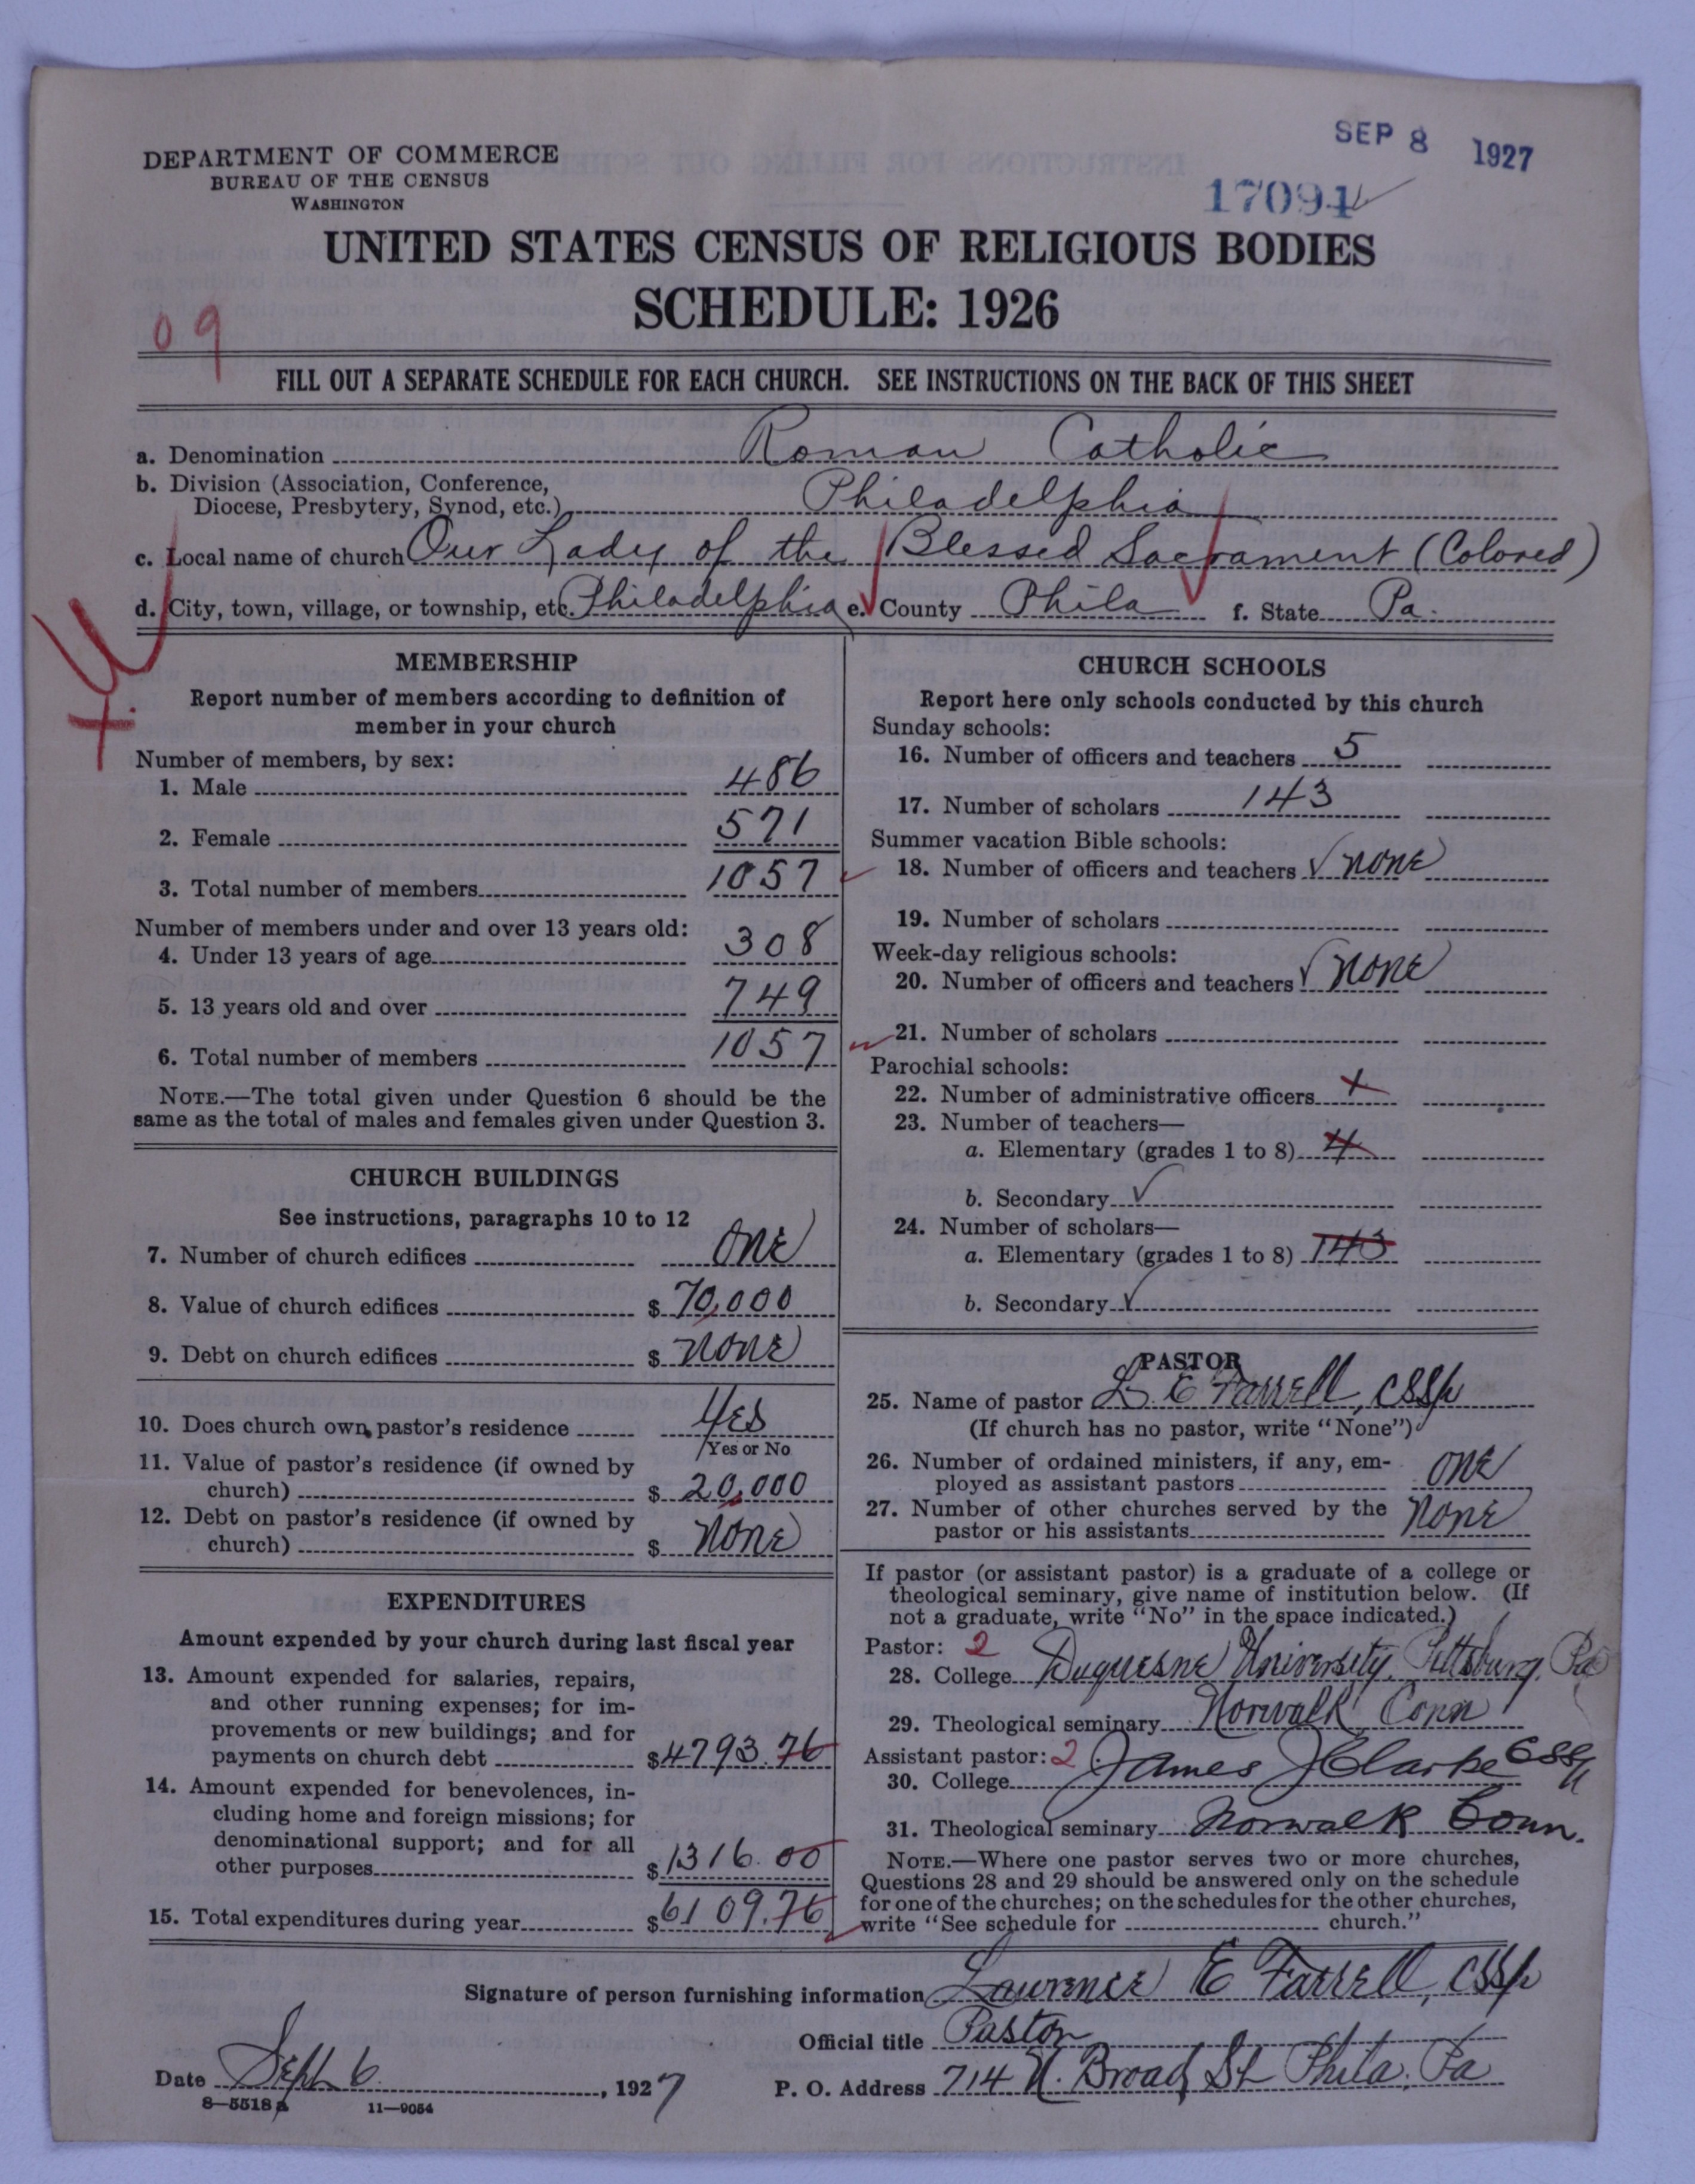 SEP 8 1927
DEPARTMENT OF COMMERCE
BUREAU OF THE CENSUS
WASHINGTON
17094
UNITED STATES CENSUS OF RELIGIOUS BODIES
SCHEDULE: 1926
09
FILL OUT A SEPARATE SCHEDULE FOR EACH CHURCH. SEE INSTRUCTIONS ON THE BACK OF THIS SHEET
a. Denomination Roman Catholic
b. Division (Association, Conference,
Diocese, Presbytery, Synod, etc.) Philadelphia
c. Local name of church Our Lady of the Blessed Sacrament (Colored)
d. City, town, village, or township, etc. Philadelphia e. County Phila f. State Pa.
MEMBERSHIP
Report number of members according to definition of
member in your church
Number of members, by sex:
1. Male 486
2. Female 571
3. Total number of members 1057
Number of members under and over 13 years old:
4. Under 13 years of age 308
5. 13 years old and over 749
6. Total number of members 1057
NOTE.—The total given under Question 6 should be the
same as the total of males and females given under Question 3.
CHURCH BUILDINGS
See instructions, paragraphs 10 to 12
7. Number of church edifices One
8. Value of church edifices $ 70,000
9. Debt on church edifices $ None
10. Does church own pastor's residence Yes
Yes or No
11. Value of pastor's residence (if owned by
church) $ 20,000
12. Debt on pastor's residence (if owned by
church) $ None
EXPENDITURES
Amount expended by your church during last fiscal year
13. Amount expended for salaries, repairs,
and other running expenses; for im-
provements or new buildings; and for
payments on church debt $ 4793.76
14. Amount expended for benevolences, in-
cluding home and foreign missions; for
denominational support; and for all
other purposes $ 1316.00
15. Total expenditures during year $ 6109.76
CHURCH SCHOOLS
Report here only schools conducted by this church
Sunday schools:
16. Number of officers and teachers 5
17. Number of scholars 143
Summer vacation Bible schools:
18. Number of officers and teachers √ None
19. Number of scholars
Week-day religious schools:
20. Number of officers and teachers √ None
21. Number of scholars
Parochial schools:
22. Number of administrative officers
23. Number of teachers—
a. Elementary (grades 1 to 8) 4
b. Secondary √
24. Number of scholars—
a. Elementary (grades 1 to 8) 143
b. Secondary √
PASTOR
25. Name of pastor L. E Farrell, CSSp
(If church has no pastor, write "None")
26. Number of ordained ministers, if any, em-
ployed as assistant pastors One
27. Number of other churches served by the
pastor or his assistants None
If pastor (or assistant pastor) is a graduate of a college or
theological seminary, give name of institution below. (If
not a graduate, write "No" in the space indicated.)
Pastor: 2
28. College Duquesne University, Pittsburg, Pa
29. Theological seminary Norwalk Conn
Assistant pastor: 2
30. College James J Clarke CSSp
31. Theological seminary Norwalk Conn.
NOTE.—Where one pastor serves two or more churches,
Questions 28 and 29 should be answered only on the schedule
for one of the churches; on the schedules for the other churches,
write "See schedule for church."
Signature of person furnishing information Lawrence E Farrell, CSSp
Official title Pastor
Date Sept 6, 1927 P. O. Address 714 N. Broad St Phila. Pa
8—5518 a 11—9054